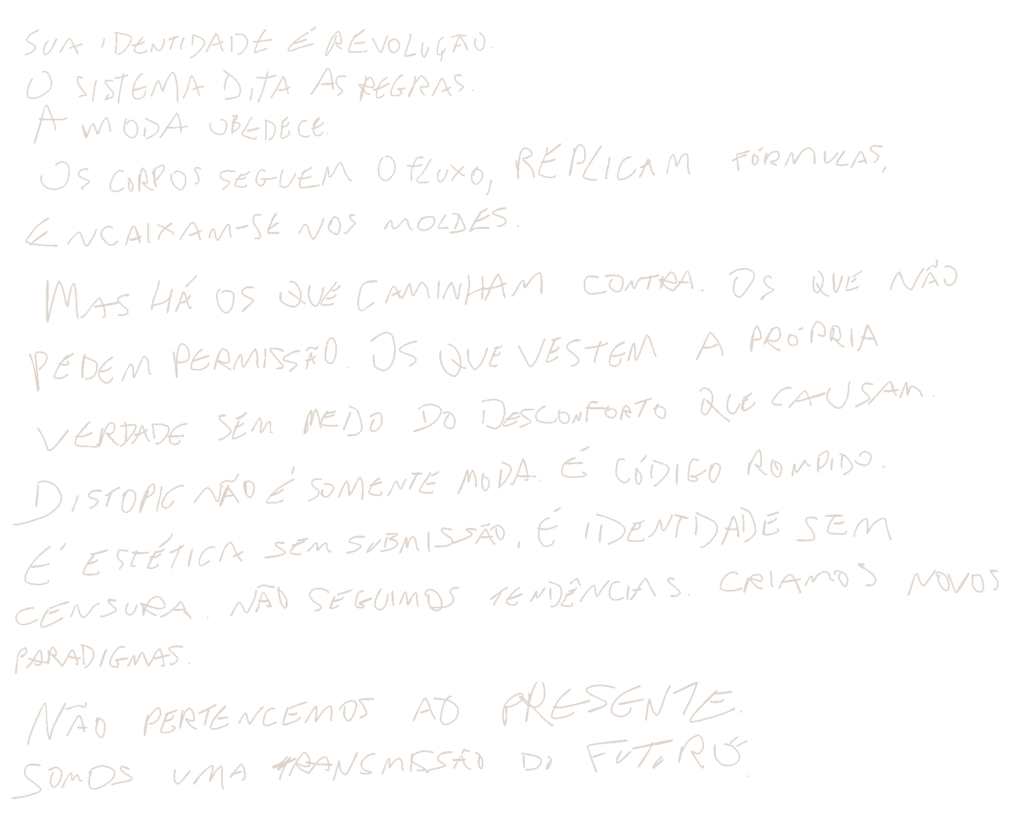 SUA IDENTIDADE É REVOLUÇÃO.
O SISTEMA DITA AS REGRAS.
A MODA OBEDECE.
OS CORPOS SEGUEM O FLUXO, REPLICAM FÓRMULAS,
ENCAIXAM-SE NOS MOLDES.
MAS HÁ OS QUE CAMINHAM CONTRA. OS QUE NÃO
PEDEM PERMISSÃO. OS QUE VESTEM A PRÓPRIA
VERDADE SEM MEDO DO DESCONFORTO QUE CAUSAM.
DISTOPIC NÃO É SOMENTE MODA. É CÓDIGO ROMPIDO.
É ESTÉTICA SEM SUBMISSÃO. É IDENTIDADE SEM
CENSURA. NÃO SEGUIMOS TENDÊNCIAS. CRIAMOS NOVOS
PARADIGMAS.
NÃO PERTENCEMOS AO PRESENTE.
SOMOS UMA TRANSMISSÃO DO FUTURO.